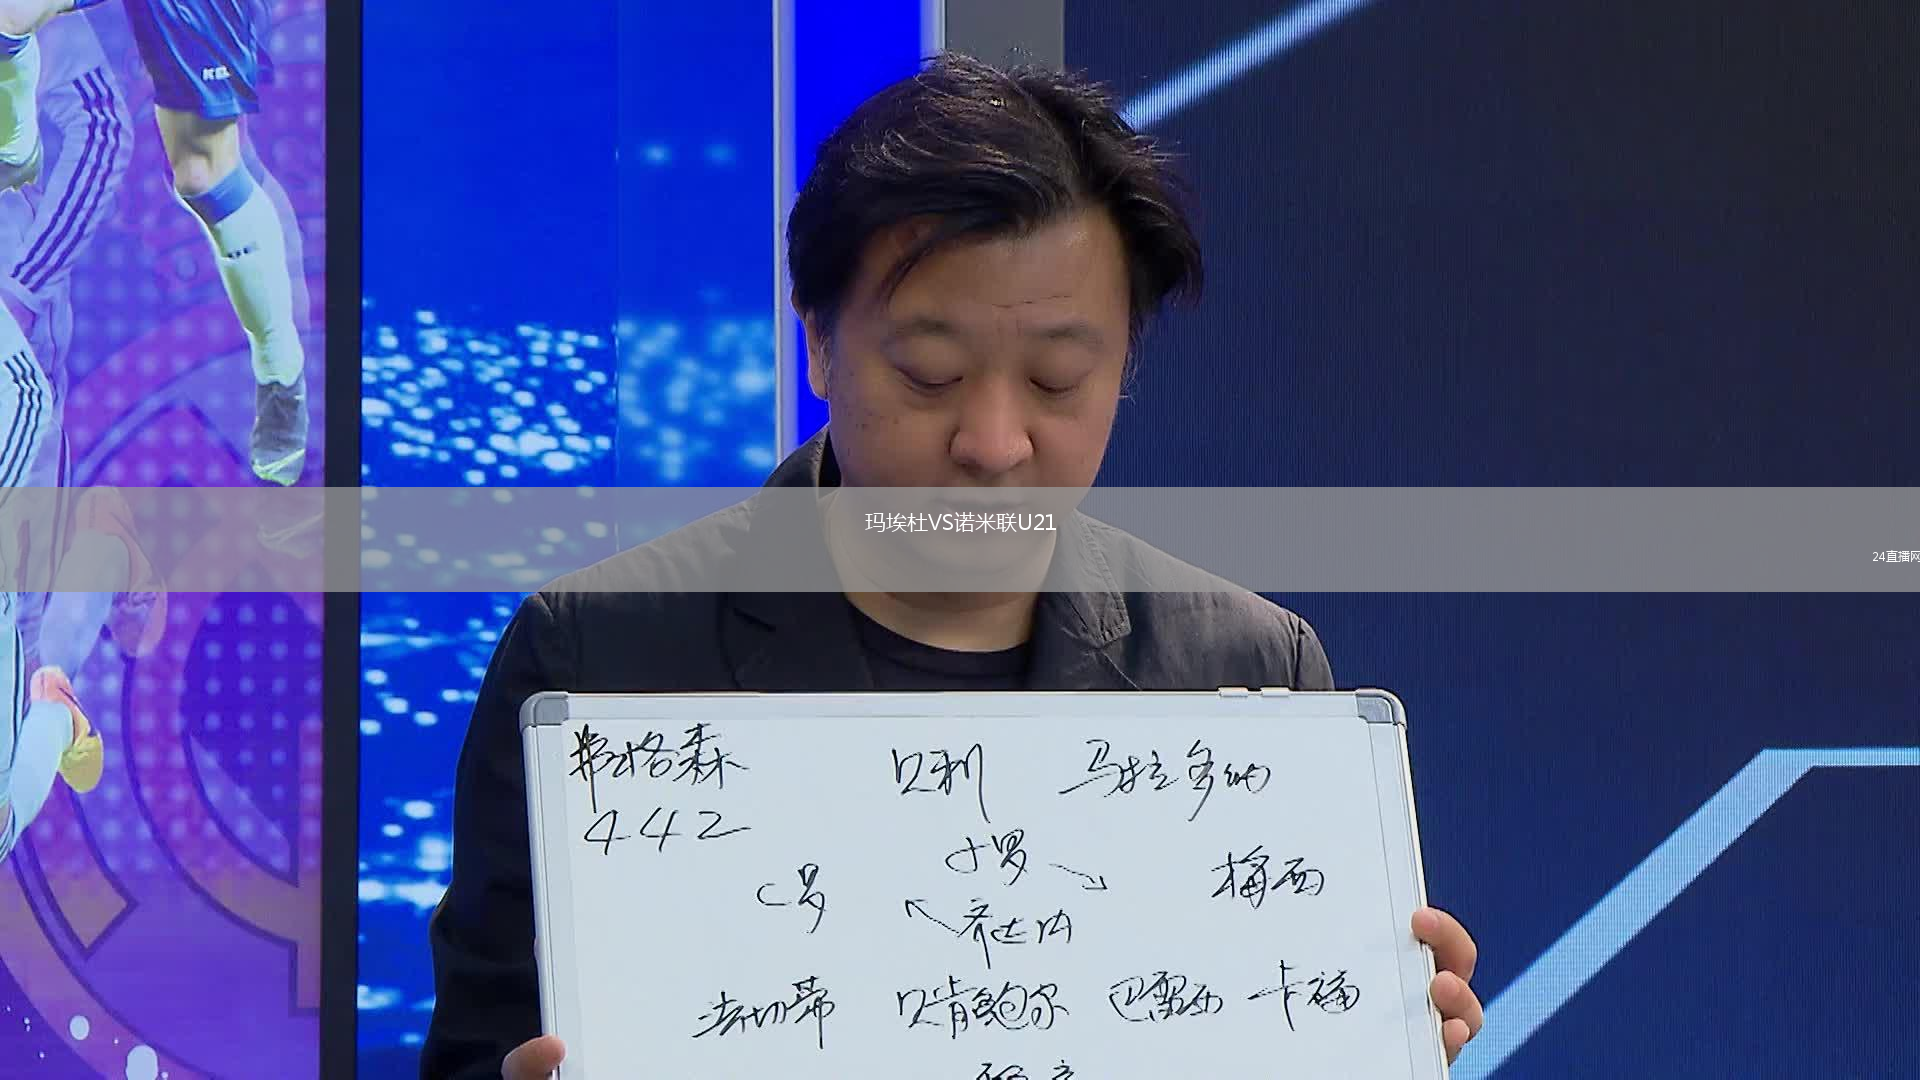 玛埃杜VS诺米联U21
24直播网
弗格森 贝利 马拉多纳
442
小罗
C罗 梅西
齐达内
法切蒂 贝肯鲍尔 巴雷西 卡福